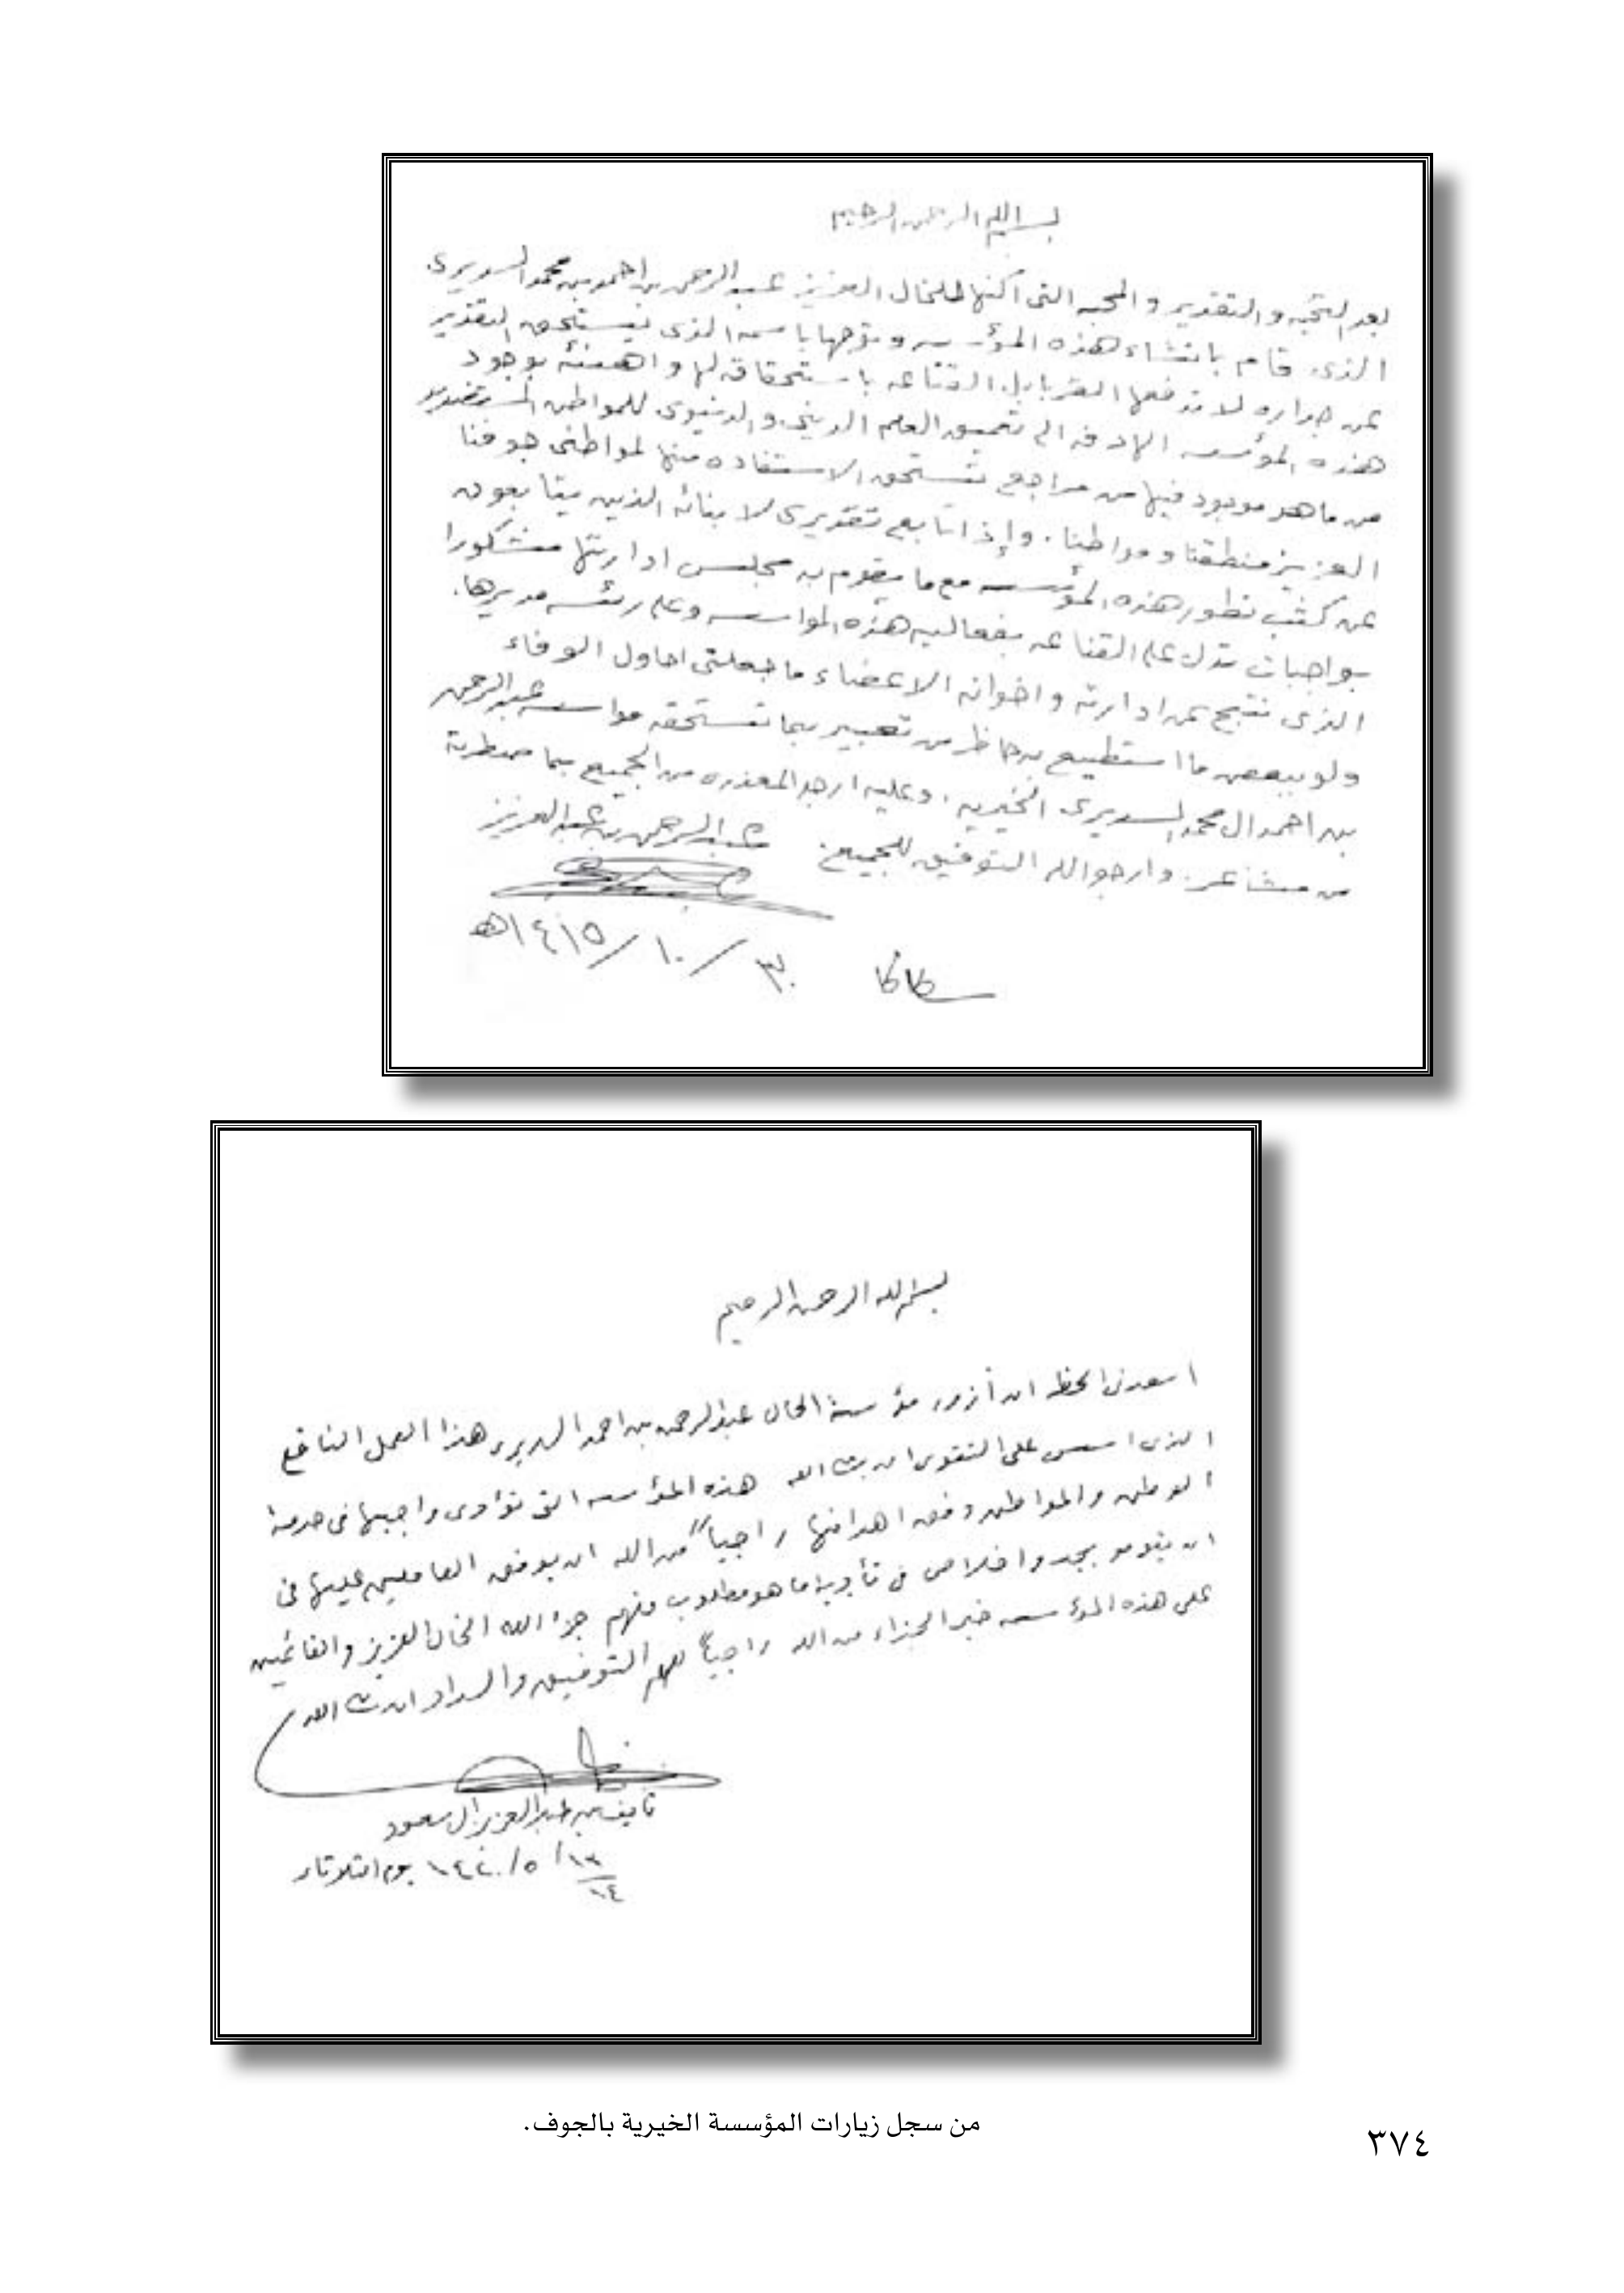 بسم الله الرحمن الرحيم
بعد التحيه والتقدير والمحبه التى اكنها للخال العزيز عبد الرحمن بن احمد بن محمد السديرى
الذى قام بانشاء هذه المؤسسه وتوجها باسمه الذى يستحق التقدير
عن جداره لا تدفعها القربا بل القناعه باستحقاقه لها واهنئه بوجود
هذه المؤسسه الهادفه الى تعميق العلم الدينى والدنيوى للمواطن
من ما هو موجود فيها من مراجع تستحق الاستفاده منها لمواطنى جوفنا
العزيز منطقتا ومواطنا. وإذ اتابع تقديرى لابنائه الذين يتابعون
عن كثب تطور هذه المؤسسه مع ما يقوم به مجلس ادارتها مشكورا
بواجبات تدل على القناعه بفعاليه هذه المواسسه وعلى رئسه مديرها.
الذى نتج عن ادارته واخوانه الاعضاء ما جعلتى احاول الوفاء
ولو ببعض ما استطيع به من تعبير بما تستحقه مواسسه عبد الرحمن
بن احمد ال محمد السديرى الخيريه، وعليه ارجو المعذره من الجميع بما
من مشاعر. وارجوا الله التوفيق للجميع. عبد الرحمن بن عبد العزيز
سكاكا ٣٠/١٠/١٤١٥هـ
بسم الله الرحمن الرحيم
اسعدنى الحظ ان أزور مؤسسة الخال عبدالرحمن بن احمد السديرى هذا العمل النافع
الذى اسس على التقوى ان شاء الله هذه المؤسسه التى تؤادى واجبها فى خدمة
الوطن والمواطن وفق اهدافها راجياً من الله ان يوفق العاملين عليها فى
ان يقومو بجد واخلاص فى تأدية ما هو مطلوب منهم جزا الله الخال العزيز والقائمين
على هذه المؤسسه خير الجزاء من الله راجياً لهم التوفيق والسداد ان شاء الله
نايف بن عبدالعزيز ال سعود
١٤٢٠/٥/ يوم الثلاثاء
من سجل زيارات المؤسسة الخيرية بالجوف.
٣٧٤